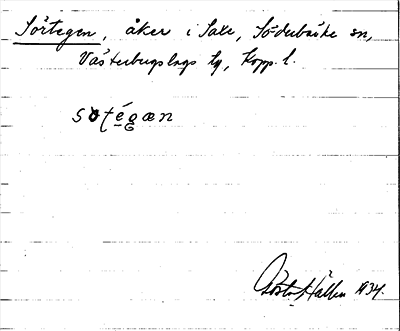 Sörtegen, åker i Saxe, Söderbärke sn,
Västerbergslags tg, Kopp. l.
sɷtégæn
Gösta Hallén 1934.